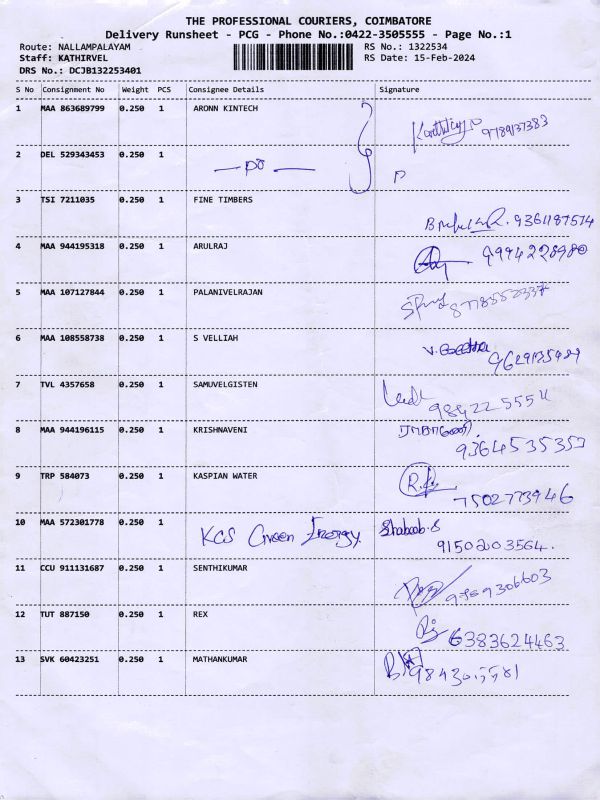 THE PROFESSIONAL COURIERS, COIMBATORE
Delivery Runsheet - PCG - Phone No.:0422-3505555 - Page No.:1
Route: NALLAMPALAYAM RS No.: 1322534
Staff: KATHIRVEL RS Date: 15-Feb-2024
DRS No.: DCJB132253401
S No Consignment No Weight PCS Consignee Details Signature
1 MAA 863689799 0.250 1 ARONN KINTECH
2 DEL 529343453 0.250 1
3 TSI 7211035 0.250 1 FINE TIMBERS 9361187574
4 MAA 944195318 0.250 1 ARULRAJ 9994228980
5 MAA 107127844 0.250 1 PALANIVELRAJAN
6 MAA 108558738 0.250 1 S VELLIAH
7 TVL 4357658 0.250 1 SAMUVELGISTEN 984225554
8 MAA 944196115 0.250 1 KRISHNAVENI 9364535353
9 TRP 584073 0.250 1 KASPIAN WATER 7502773946
10 MAA 572301778 0.250 1 KCS Green Energy Shabaab.S 9150203564.
11 CCU 911131687 0.250 1 SENTHIKUMAR
12 TUT 887150 0.250 1 REX 6383624463
13 SVK 60423251 0.250 1 MATHANKUMAR